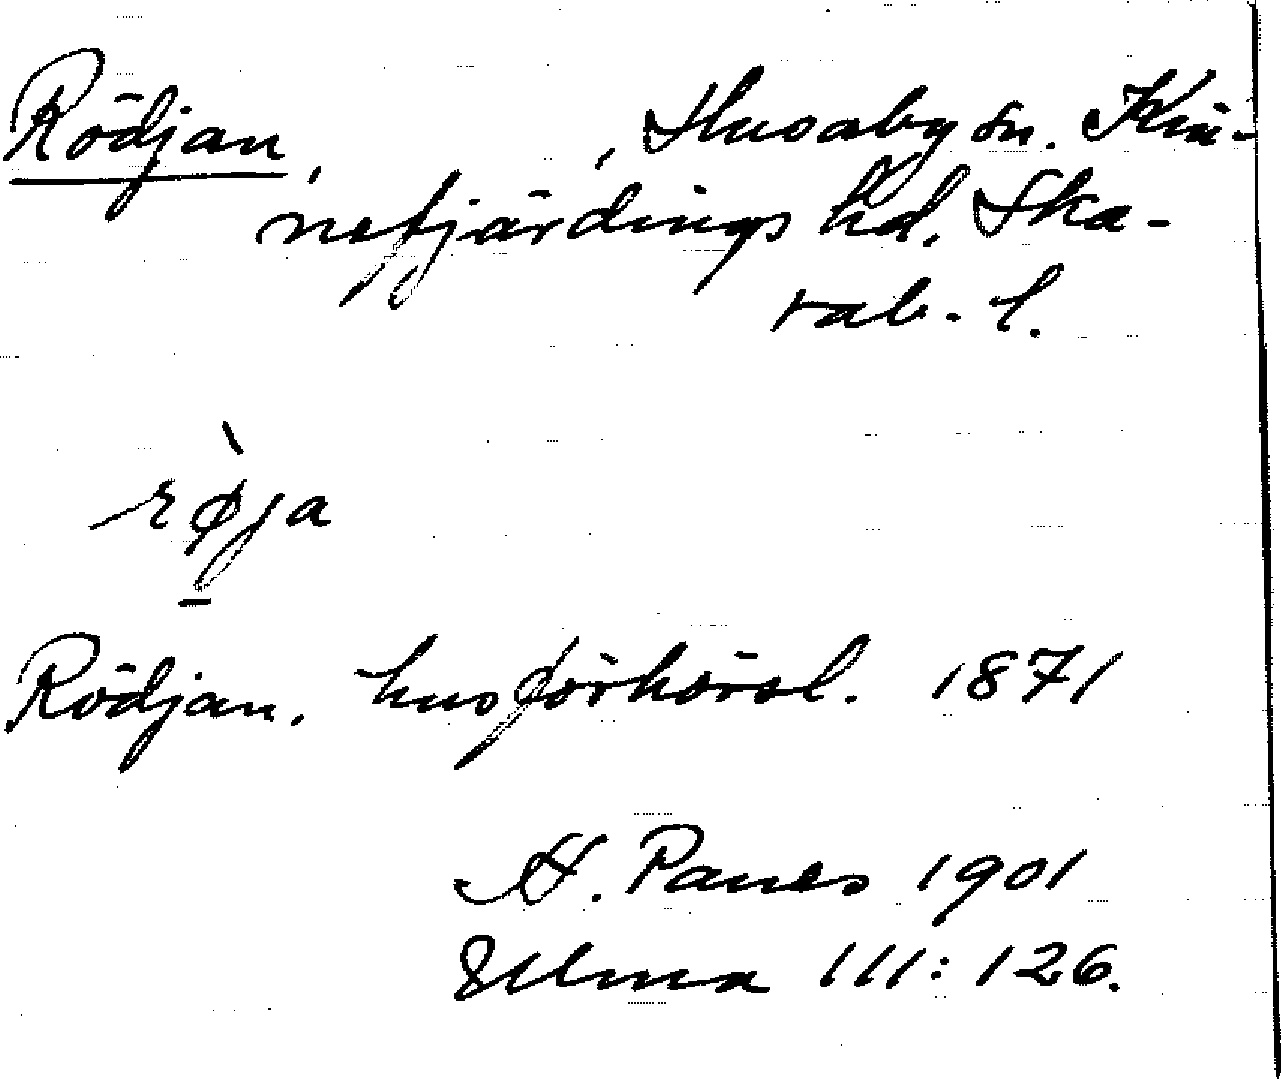 Rödjan, , Husaby sn. Kin-
nefjärdings hd. Ska-
rab. l.
røja
Rödjan. husförhörsl. 1871
H. Panes 1901
Elma III: 126.